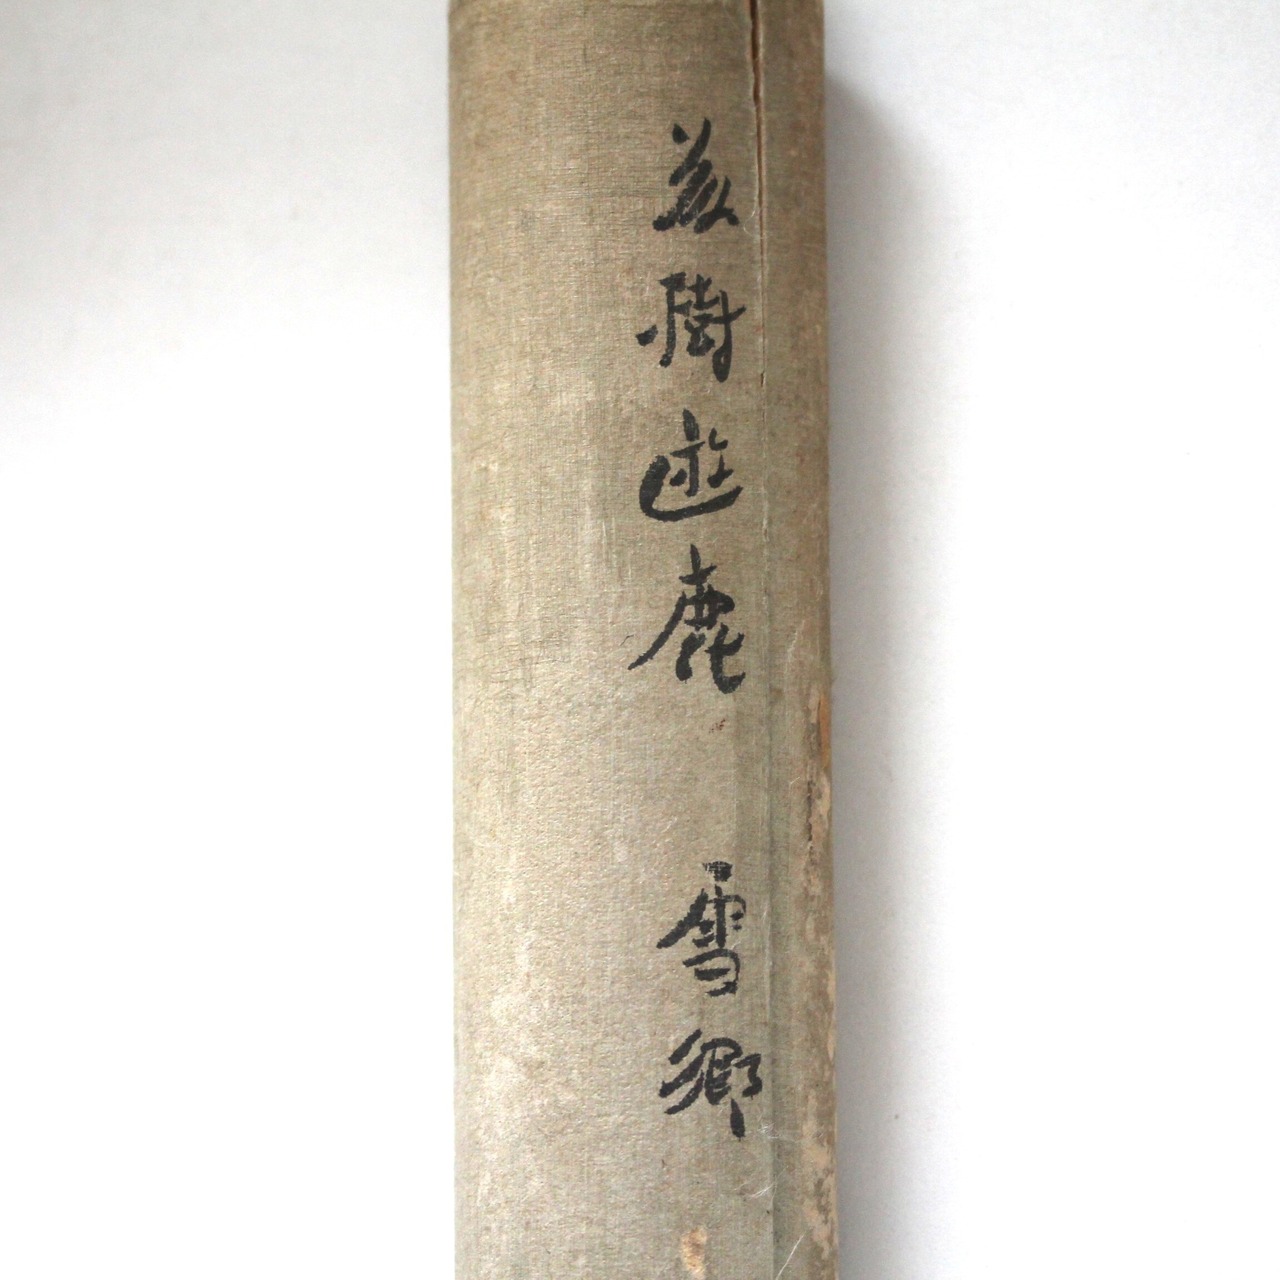 樹遊鹿 雪郷